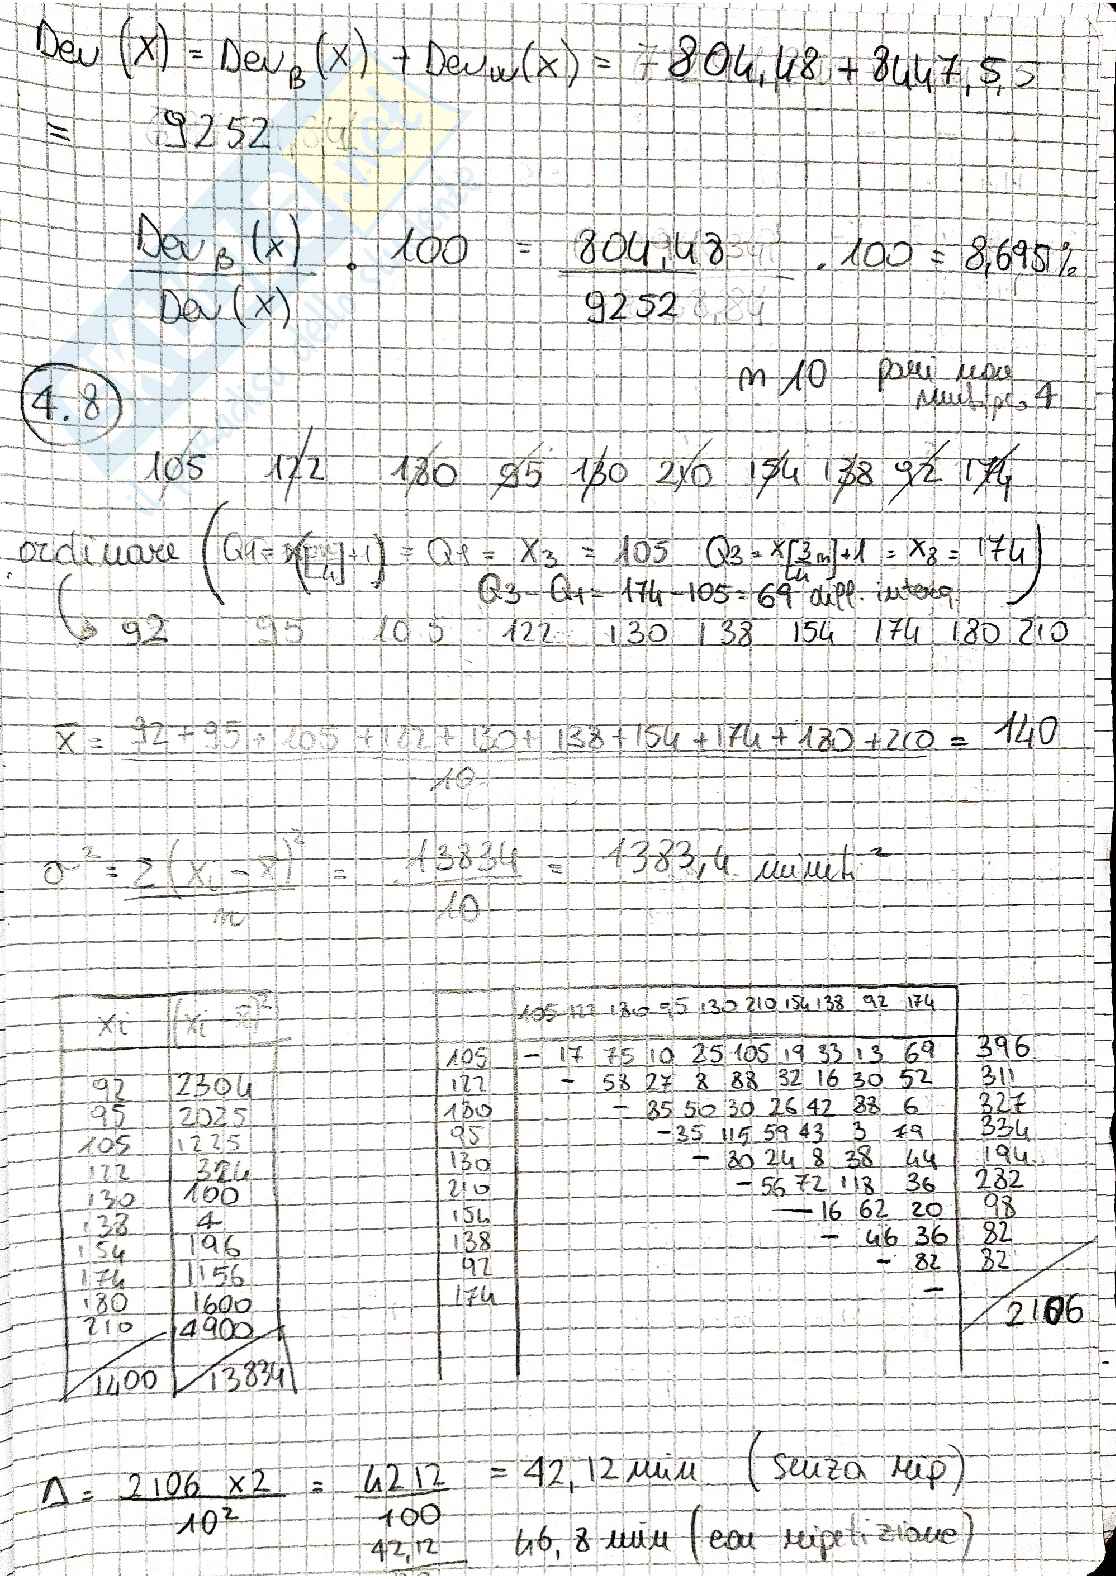 Dev (x) = Dev_B (x) + Dev_w (x) = 804,48 + 8447,5
= 9252
Dev_B (x) / Dev (x) . 100 = 804,48 / 9252 . 100 = 8,695%
4.8 n 10 pari non
4
105 122 180 95 130 210 154 138 92 174
ordinare ( Q1 = = Q1 = X3 = 105 Q3 = X[3/4 n]+1 = X8 = 174 )
Q3 - Q1 = 174 - 105 = 69 diff. interq.
92 95 105 122 130 138 154 174 180 210
x̄ = 92 + 95 + 105 + 122 + 130 + 138 + 154 + 174 + 180 + 210 / 10 = 140
σ² = Σ (xi - x̄)² / n = 13834 / 10 = 1383,4 minuti²
xi (xi - x̄)²
92 2304
95 2025
105 1225
122 324
130 100
138 4
154 196
174 1156
180 1600
210 4900
1400 13834
105 122 180 95 130 210 154 138 92 174
105 - 17 75 10 25 105 19 33 13 69 396
122 - 58 27 8 88 32 16 30 52 311
180 - 85 50 30 26 42 88 6 327
95 - 35 115 59 43 3 79 334
130 - 80 24 8 38 44 194
210 - 56 72 118 36 282
154 - 16 62 20 98
138 - 46 36 82
92 - 82 82
174 -
2106
Δ = 2106 x2 / 10² = 4212 / 100 = 42,12 min (senza rip)
42,12
46,8 min (con ripetizione)